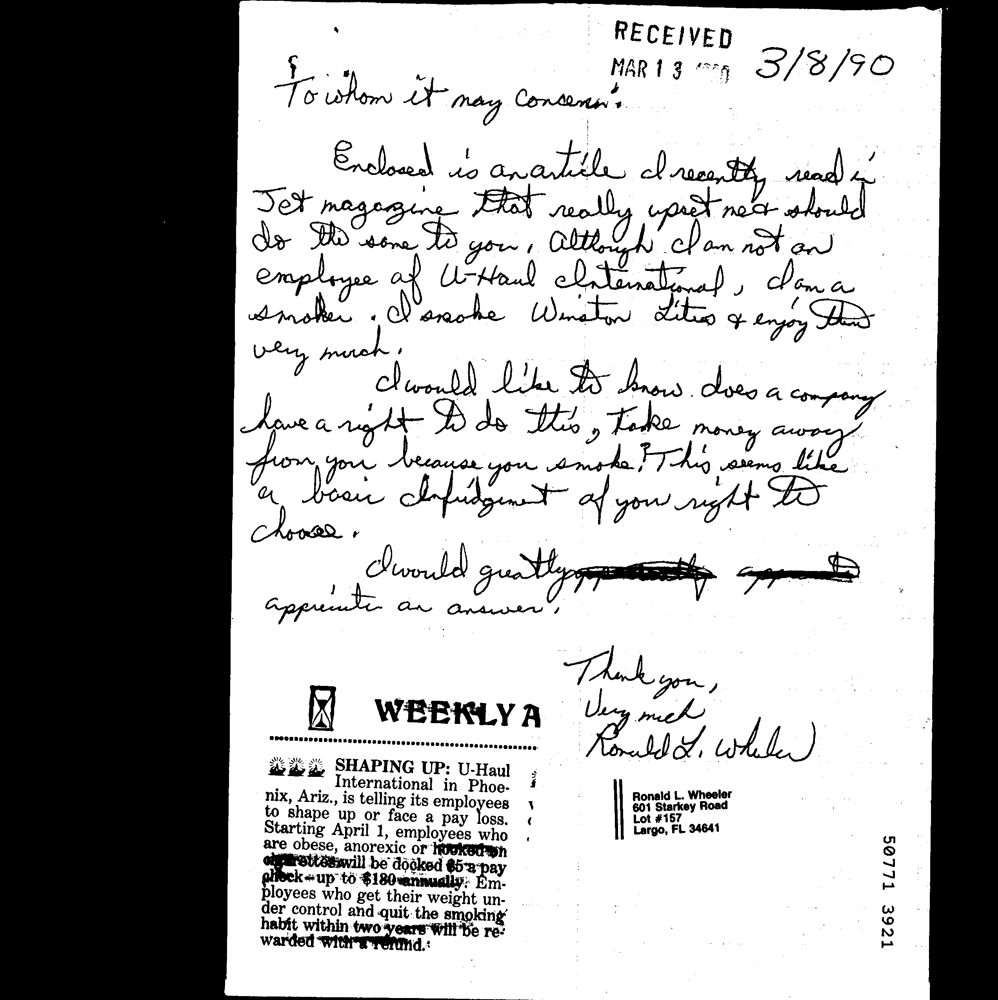 RECEIVED
MAR 13 1990
3/8/90
To whom it may concern:
Enclosed is an article I recently read in
Jet magazine that really upset me & should
do the same to you. Although I am not an
employee of U-Haul International, I am a
smoker. I smoke Winston Lites & enjoy them
very much.
I would like to know does a company
have a right to do this, take money away
from you because you smoke? This seems like
a basic Infridgement of your right to
choose.
I would greatly
appreciate an answer.
Thank you,
Very much
Ronald L. Wheeler
Ronald L. Wheeler
601 Starkey Road
Lot #157
Largo, FL 34641
WEEKLY A
SHAPING UP: U-Haul
International in Phoe-
nix, Ariz., is telling its employees
to shape up or face a pay loss.
Starting April 1, employees who
are obese, anorexic or hooked on
cigarettes will be docked $5 a pay
check—up to $180 annually. Em-
ployees who get their weight un-
der control and quit the smoking
habit within two years will be re-
warded with a refund.
50771 3921